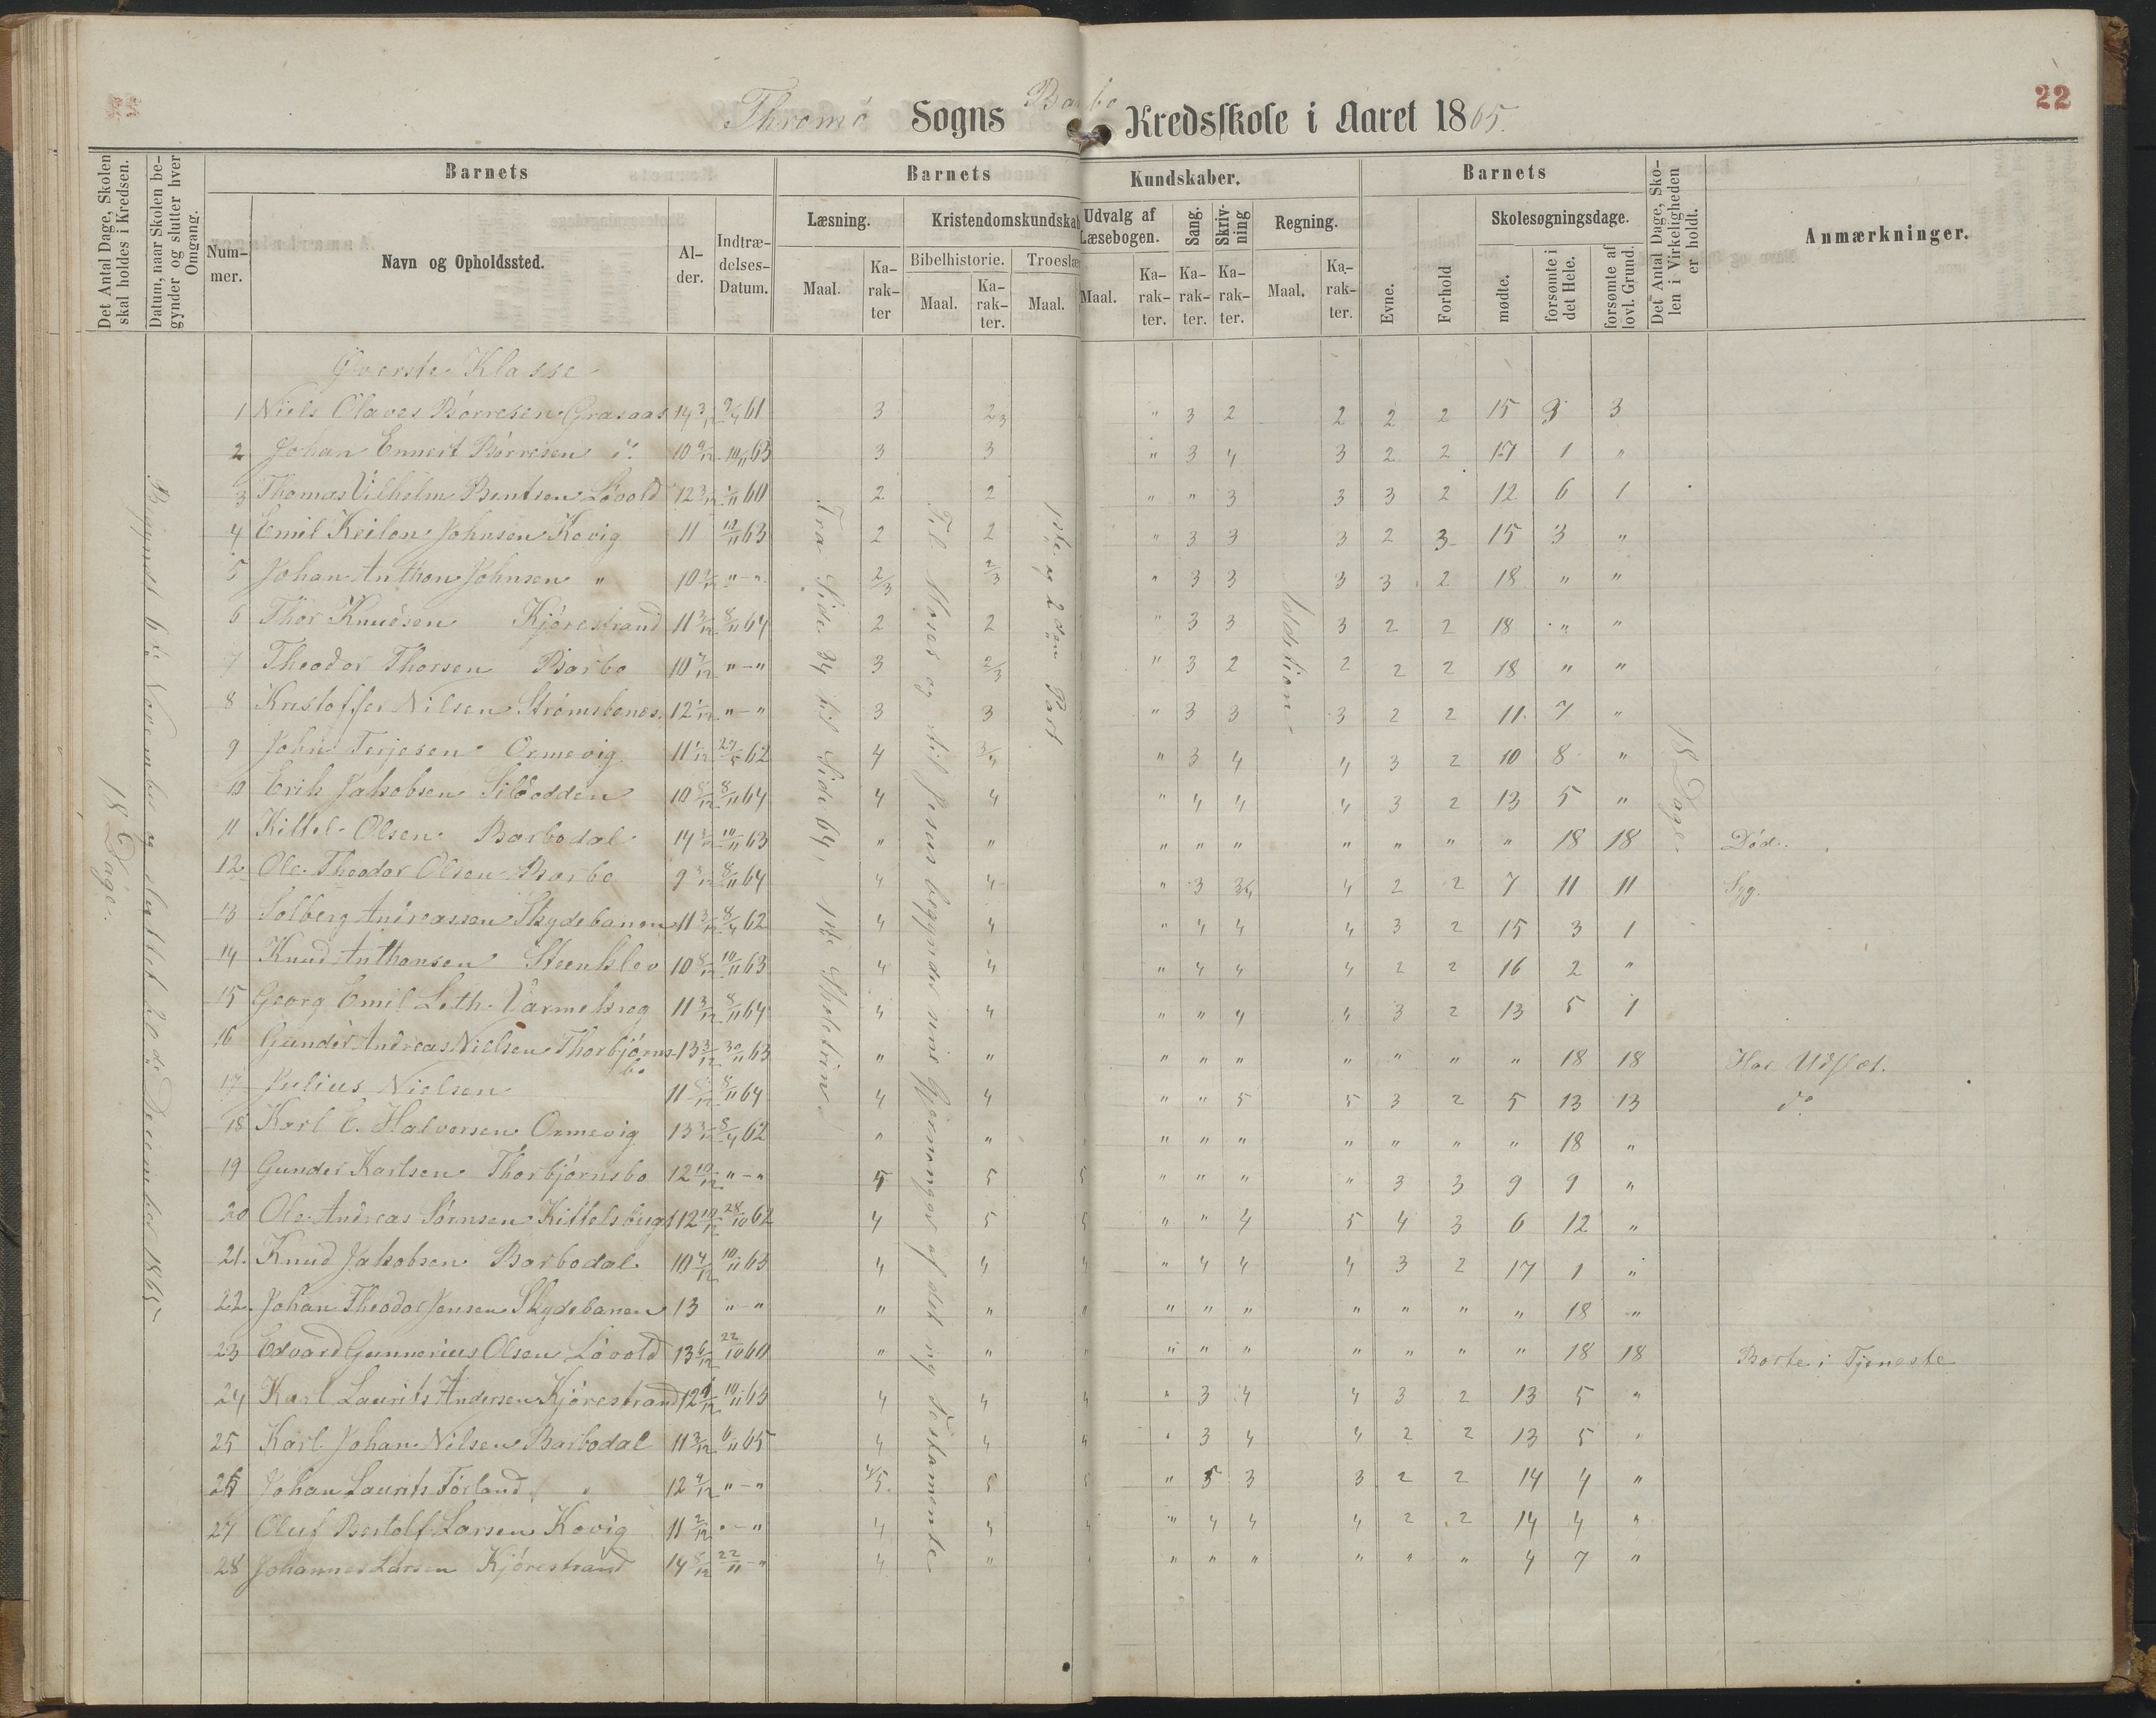 22
Thromø Sogns Barbo Kredsskole i Aaret 1865.
Det Antal Dage, Skolen skal holdes i Kredsen.
Datum, naar Skolen begynder og slutter hver Omgang.
Barnets
Nummer.
Navn og Opholdssted.
Alder.
Indtrædelses-Datum.
Barnets Kundskaber.
Læsning.
Maal. Karakter
Kristendomskundskab
Bibelhistorie. Troeslær
Maal. Karakter. Maal.
Udvalg af Læsebogen.
Maal. Karakter.
Sang. Karakter.
Skrivning Karakter.
Regning.
Maal. Karakter.
Barnets
Evne. Forhold
Skolesøgningsdage.
mødte. forsømte i det Hele. forsømte af lovl. Grund.
Det Antal Dage, Skolen i Virkeligheden er holdt.
Anmærkninger.
18 Dage.
Begyndt 6te November og sluttet 20de December 1865
Fra Side 34 til Side 64, 1ste Skoletrin
Fra Moses og til Jesus begynder sine Gjerninger af det ny Testamente
1ste og 2den Part
Addition
18 Dage.
Øverste Klasse
1 Niels Olaves Børresen Grasaas 14 3/12 9/4 61 3 2 3 " 3 2 2 2 2 15 3 3
2 Johan Ennert Børresen do 10 9/12 10/11 63 3 3 " 3 4 3 2 2 17 1 "
3 Thomas Vilhelm Bentsen Løvold 12 3/12 1/11 60 2 2 " " 3 3 3 2 12 6 1
4 Emil Keilon Johnsen Kovig 11 10/11 63 2 2 " 3 3 3 2 3 15 3 "
5 Johan Anthon Johnsen " 10 1/12 " - " 2/3 2/3 " 3 3 3 3 2 18 " "
6 Thor Knudsen Kjørestrand 11 3/12 8/11 64 2 2 " 3 3 3 2 2 18 " "
7 Theodor Thorsen Barbo 10 7/12 " - " 3 2/3 " 3 2 2 2 2 18 " "
8 Kristoffer Nilsen Strømsbones 12 1/12 " - " 3 3 " 3 3 3 2 2 11 7 "
9 John Terjesen Ormevig 11 1/12 29/5 62 4 3/4 " 3 4 4 3 2 10 8 "
10 Erik Jakobsen Sildodden 10 8/12 8/11 64 4 4 " 4 4 4 3 2 13 5 "
11 Kittel Olsen Barbodal 14 3/12 10/11 63 " " " " " " " " " 18 18 Død.
12 Ole Theodor Olsen Barbo 9 3/12 8/11 64 4 4 " 3 3/4 4 2 2 7 11 11 Syg.
13 Solberg Andreassen Skydebanen 11 3/12 8/4 62 4 4 " 4 4 4 3 2 15 3 1
14 Knud Anthonsen Steenklev 10 8/12 10/11 63 4 4 " 4 4 4 2 2 16 2 "
15 Georg Emil Leth Varmekrog 11 3/12 8/11 64 4 4 " " 4 4 3 2 13 5 1
16 Gunder Andreas Nielsen Thorbjørnsbo 13 3/12 30/11 63 " " " " " " " " " 18 18 Har Udslæt.
17 Julius Nielsen 11 8/12 8/11 64 4 4 " " 5 5 3 2 5 13 13 do
18 Karl E. Halvorsen Ormevig 13 3/12 8/4 62 " " " " " " " " " 18 "
19 Gunder Karlsen Thorbjørnsbo 12 10/12 " - " 5 5 5 " " " " 3 3 9 9 "
20 Ole Andreas Sørnsen Kittelsbugt 12 10/12 28/10 62 4 5 5 " " 4 5 4 3 6 12 "
21. Knud Jakobsen Barbodal 10 4/12 10/11 63 4 4 4 " 4 4 4 3 2 17 1 "
22. Johan Theodor Jensen Skydebanen 13 " - " " " " " " " " " " " 18 "
23 Edvard Gunnerius Olsen Løvold 13 6/12 22/10 60 " " " " " " " " " " 18 18 Borte i Tjeneste
24 Karl Laurits Andersen Kjørestrand 12 9/12 10/11 63 4 4 4 " 3 4 4 3 2 13 5 "
25 Karl Johan Nilsen Barbodal 11 3/12 6/11 65 4 4 4 " 3 4 4 2 2 13 5 "
26 Johan Laurits Førland " 12 9/12 " - " 4/5 5 5 " 5 3 3 2 2 14 4 "
27 Oluf Bertolf Larsen Kovig 11 2/12 " - " 4 4 4 " 4 4 4 2 2 14 4 "
28 Johannes Larsen Kjørestrand 14 8/12 22/11 - " 4 " " " " " " " " 4 7 "